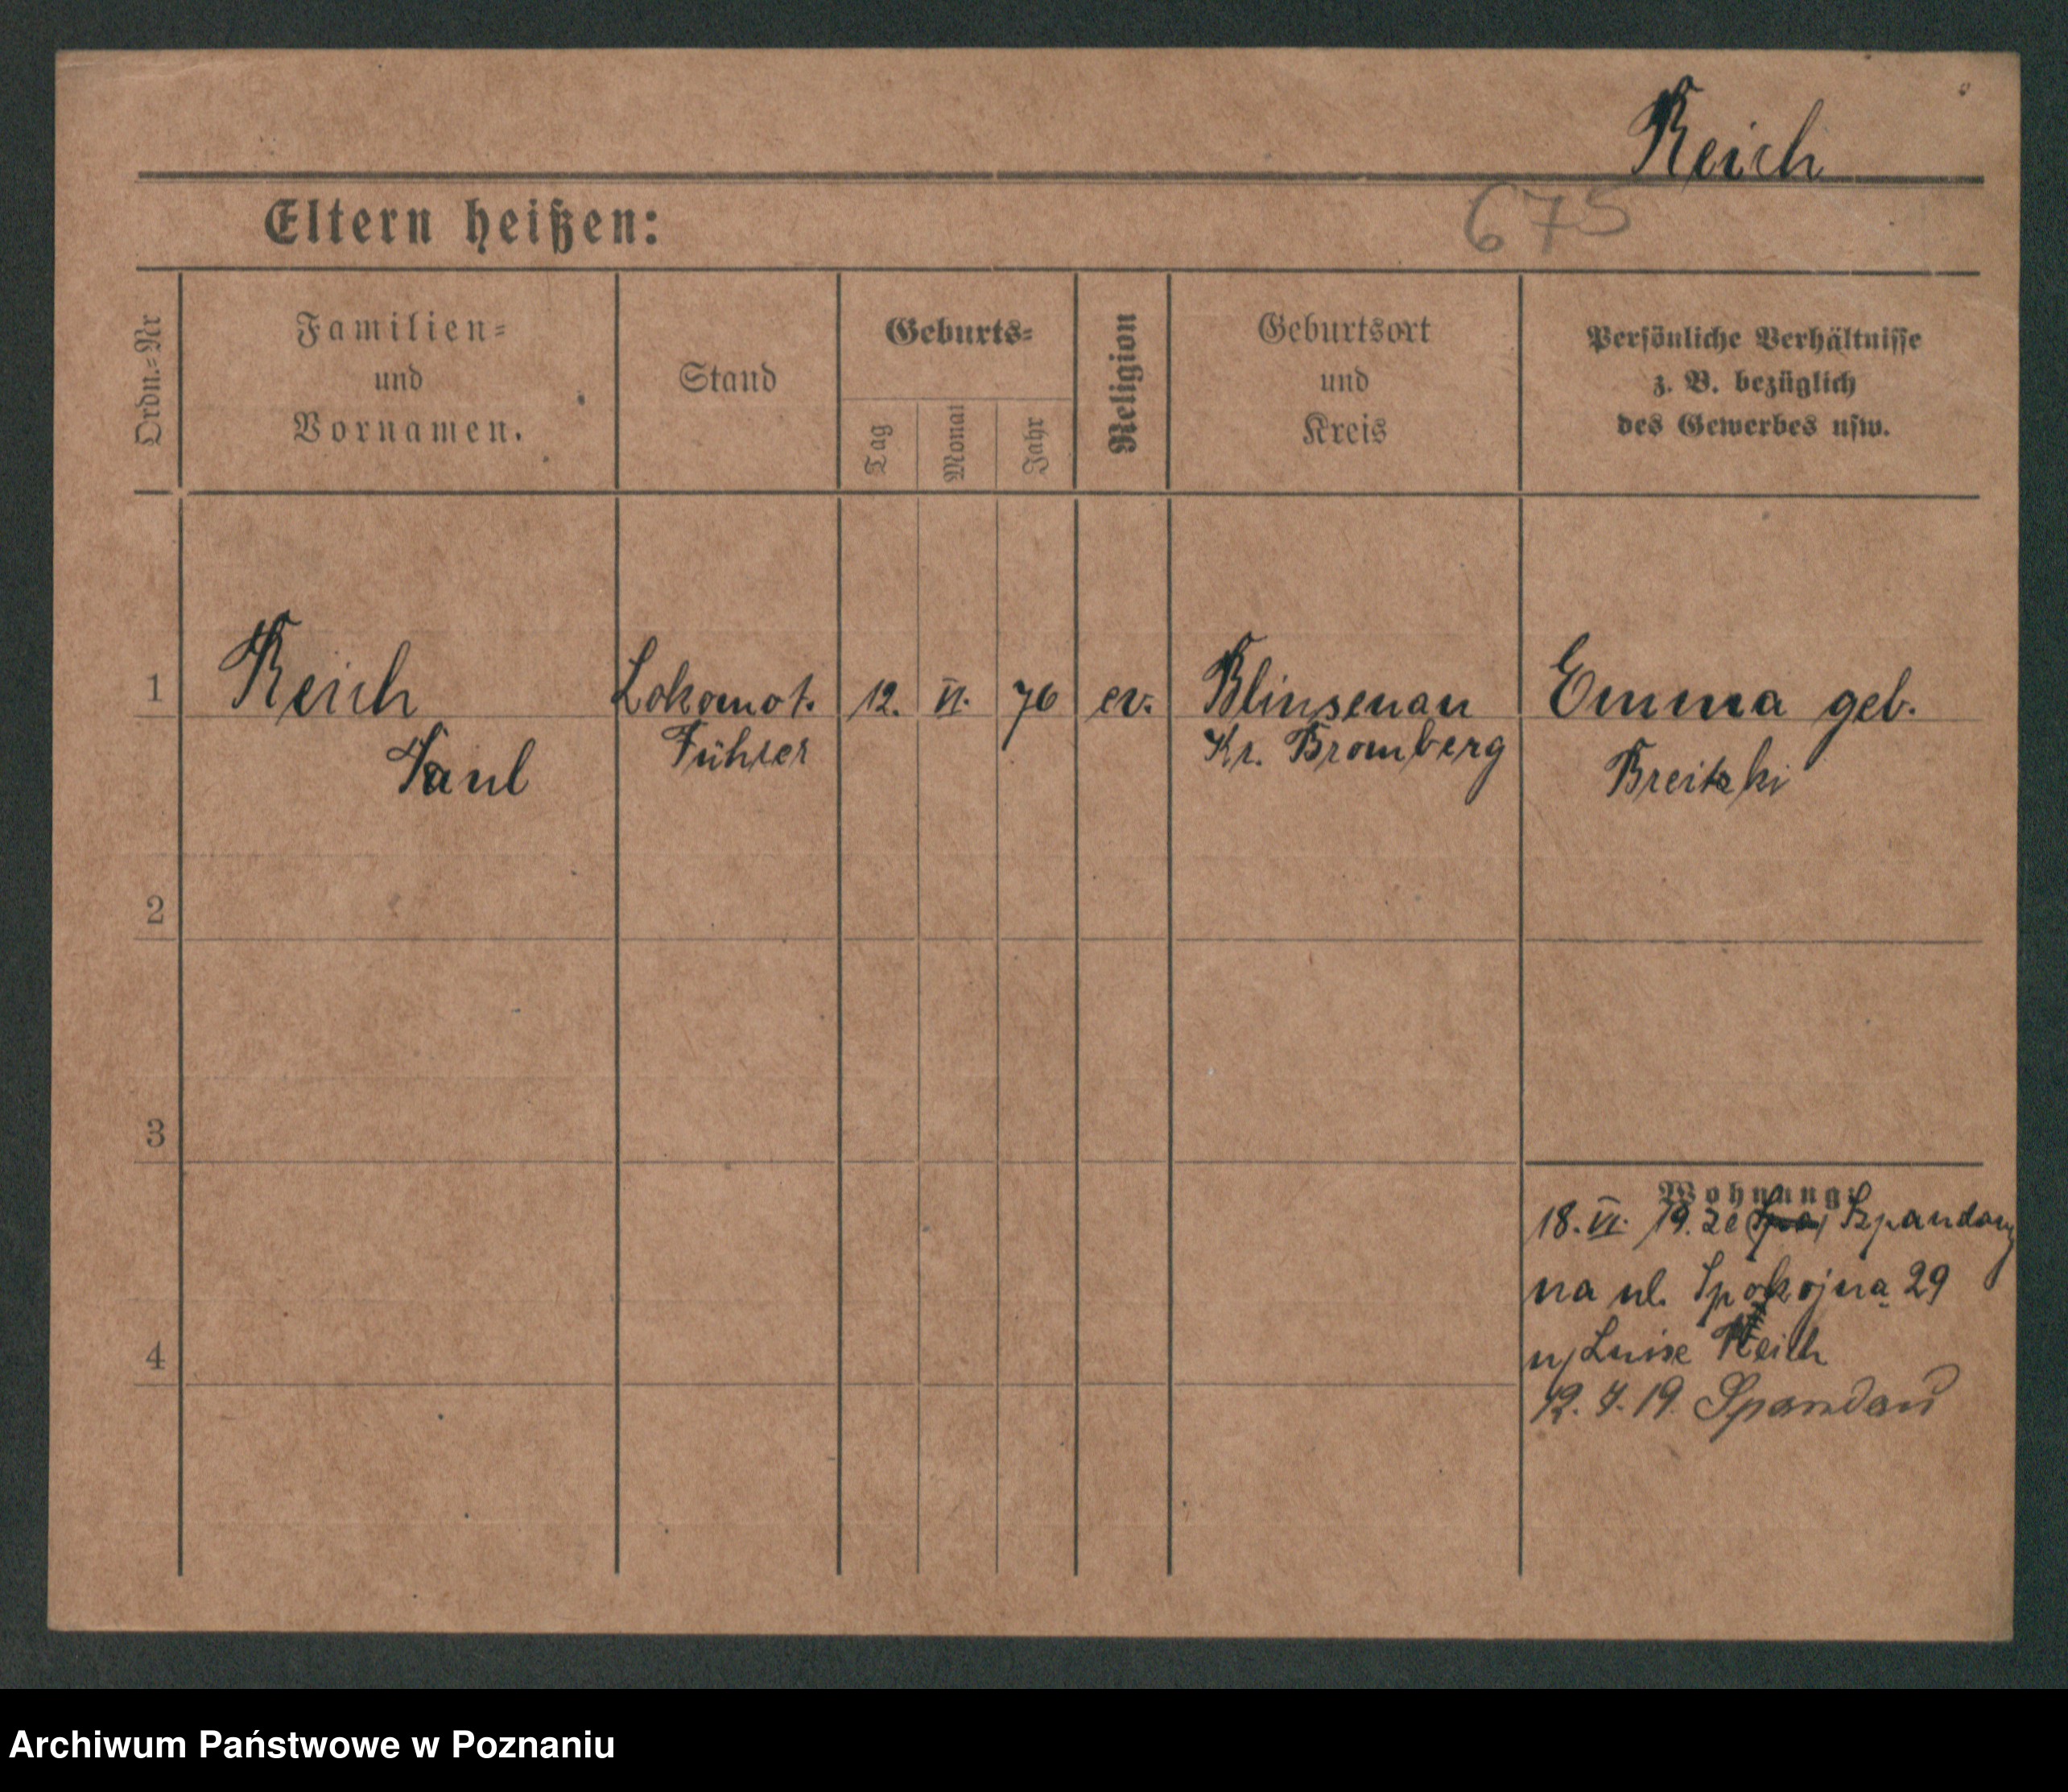 Reich
675
Eltern heißen:
Ordn.-Nr
Familien-
und
Vornamen.
Stand
Geburts-
Tag
Monat
Jahr
Religion
Geburtsort
und
Kreis
Persönliche Verhältnisse
z. B. bezüglich
des Gewerbes usw.
1 Reich Lokomot. 12. VI. 76 ev. Blinsenau Emma geb.
Paul Führer Kr. Bromberg Breitzki
2
3
Wohnung:
18. VI. 19. ze Szpandawy
na ul. Spokojna 29
4
u/ Luise Reich
12. 7. 19. Spandau
Archiwum Państwowe w Poznaniu